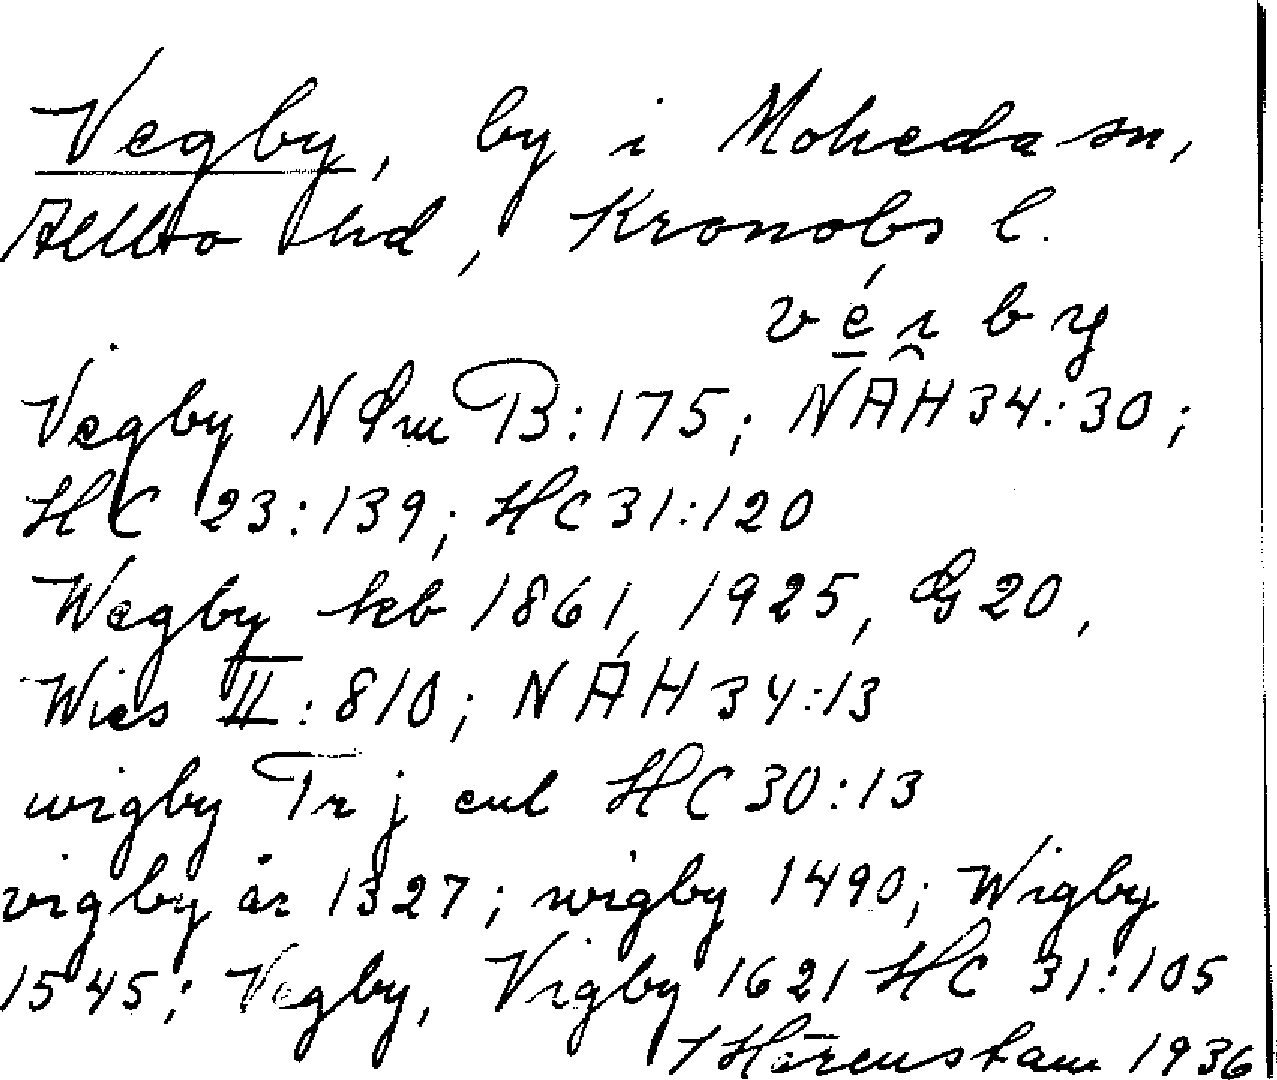 Vegby, by i Moheda sn,
Allbo hd, Kronobs l.
véi by
Vegby N Sm B:175; NÄH 34:30;
HC 23:139; HC 31:120
Wegby kb 1861, 1925, G 20,
Wies II:810; NÄH 34:13
wigby Tr j cul HC 30:13
vigby år 1327; wigby 1490; Wigby
1545; Vegby, Vigby 1621 HC 31:105
1936